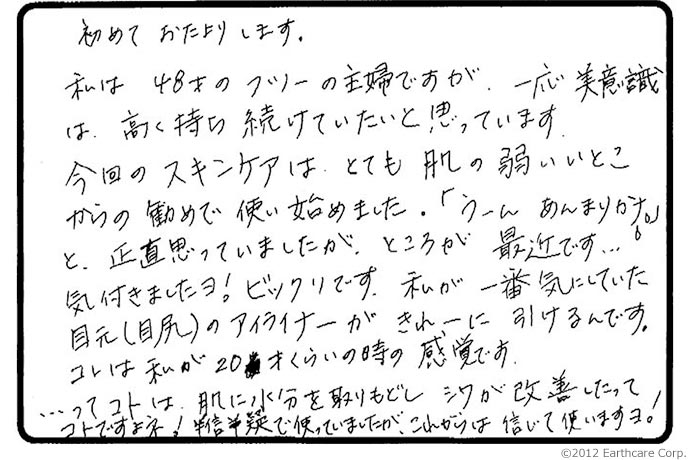 初めて おたより します。
私は 48才の フツーの主婦ですが、一応 美意識
は、高く持ち 続けていたいと思っています。
今回の スキンケアは、とても 肌の 弱い いとこ
からの 勧めで 使い 始めました。「うーん あんまりかナ。」
と、正直思っていましたが、ところが 最近です…
気付きましたヨ! ビックリです。私が 一番 気にしていた
目元(目尻)の アイライナーが きれーに 引けるんです。
コレは 私が 20才くらいの時の 感覚です。
…って コトは、肌に水分を取りもどし シワが 改善したって
コトですよネ! 半信半疑で使っていましたが、これからは 信じて 使いますヨ!
©2012 Earthcare Corp.